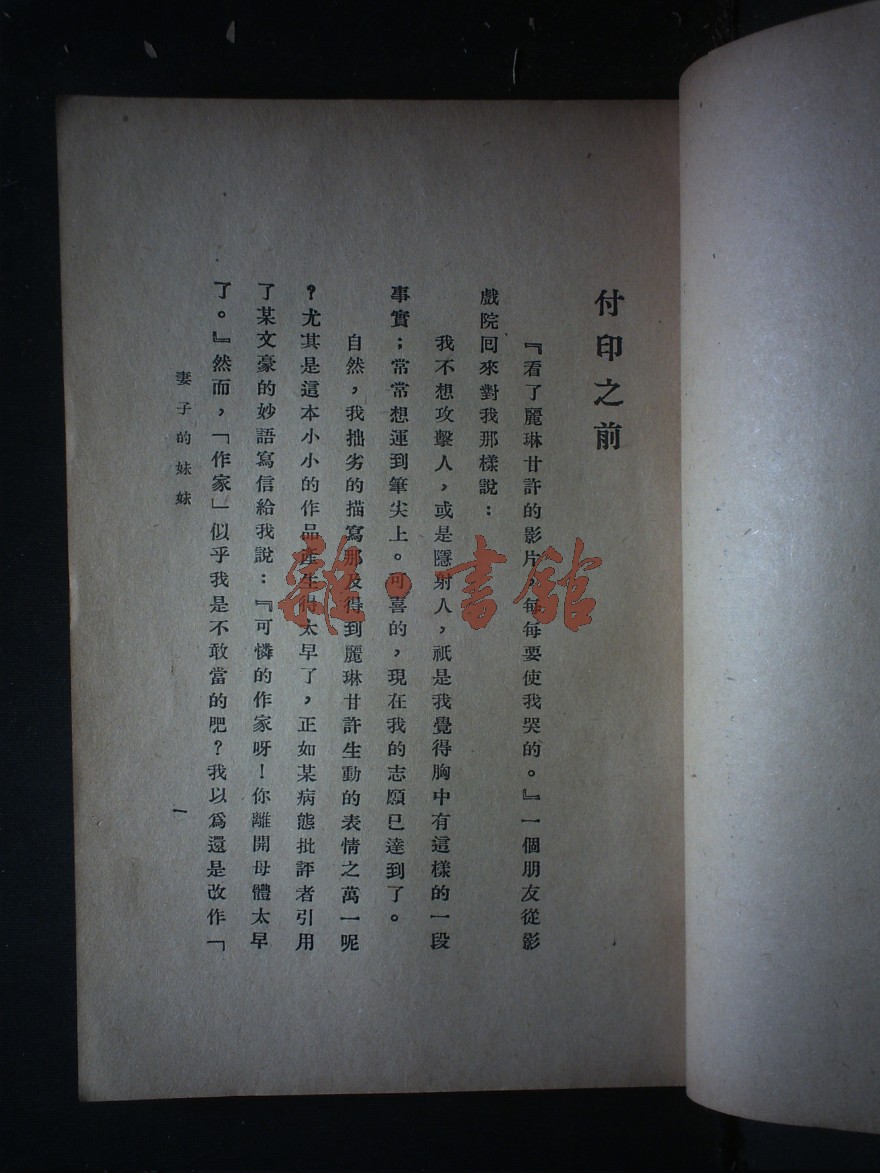 付印之前
『看了麗琳甘許的影片，每每要使我哭的。』一個朋友從影
戲院回來對我那樣說：
我不想攻擊人，或是隱射人，祇是我覺得胸中有這樣的一段
事實；常常想運到筆尖上。可喜的，現在我的志願已達到了。
自然，我拙劣的描寫那及得到麗琳甘許生動的表情之萬一呢
？尤其是這本小小的作品產生得太早了，正如某病態批評者引用
了某文豪的妙語寫信給我說：『可憐的作家呀！你離開母體太早
了。』然而，「作家」似乎我是不敢當的肥？我以爲還是改作「
妻子的妹妹
一
雜·書館